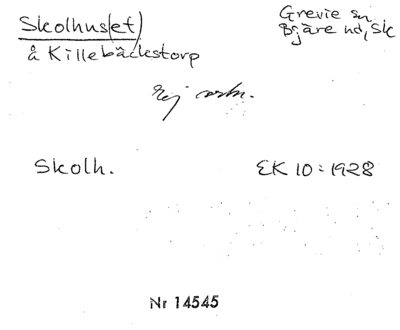 Skolhus(et)
å Killebäckstorp
Grevie sn
Bjäre hd, Sk
Ej
Skolh.
EK 10:1928
Nr 14545